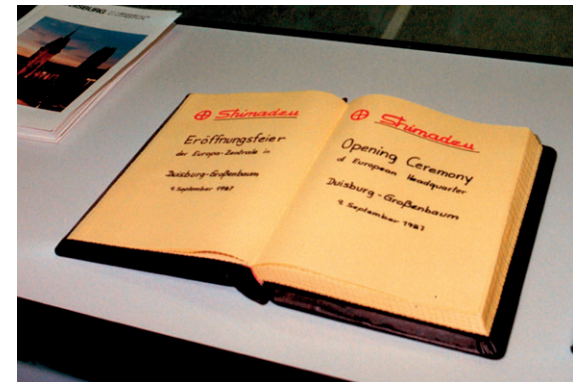 Shimadzu
Eröffnungsfeier
der Europa-Zentrale in
Duisburg-Großenbaum
9. September 1987
Shimadzu
Opening Ceremony
of European Headquarter
Duisburg-Großenbaum
9. September 1987